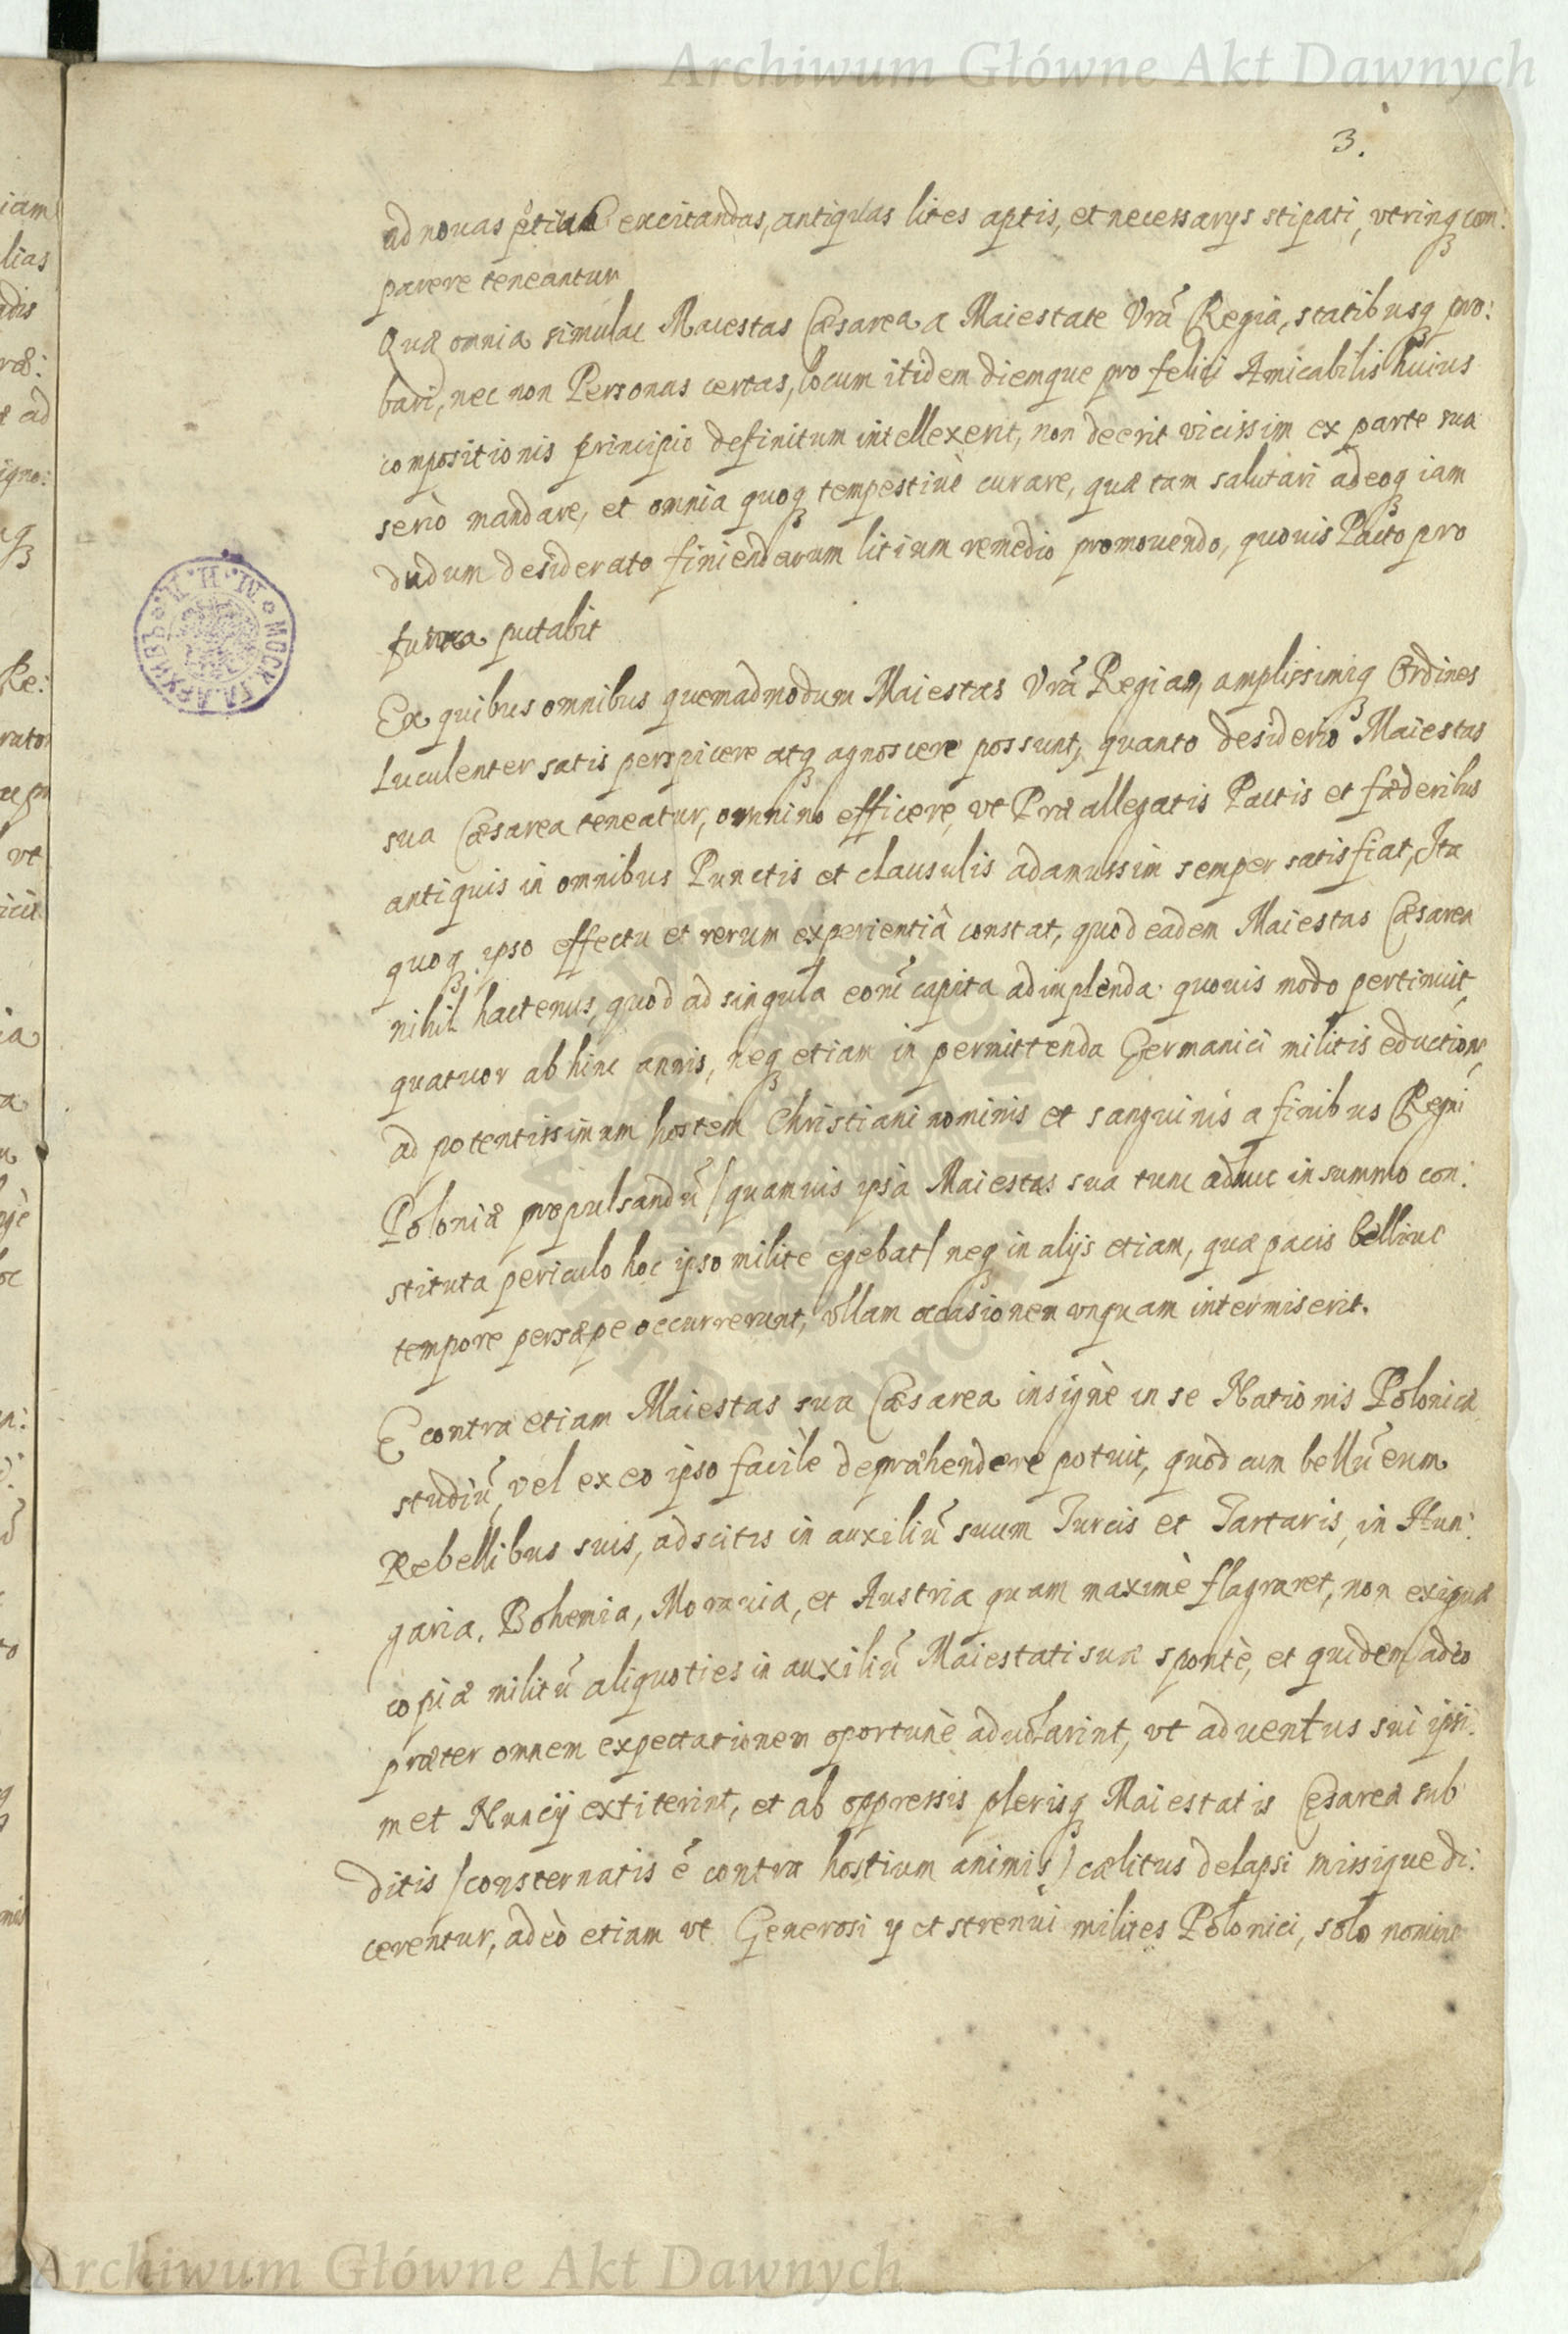 Archiwum Główne Akt Dawnych
3.
ad nouas excitandas, antiquas lites aptis, et necessarys stipati, vtrinq con:
parere teneantur
Quæ omnia simulac Maiestas Cæsarea a Maiestate Vrã Regia, statibusq pro:
bari, nec non Personas certas, locum itidem diemque pro felici Amicabilis huius
compositionis principio definitum intellexerit, non deerit vicissim ex parte sua
seriò mandare, et omnia quoq tempestiuè curare, quæ tam salutari adeoq iam
dudum desiderato finiendarum litium remedio promouendo, quouis Pacto pro
futura putabit
Ex quibus omnibus quemadmodum Maiestas Vrã Regia, amplissimiq Ordines
Luculenter satis perspicere atq agnoscere possunt, quanto desiderio Maiestas
sua Cæsarea teneatur, omnino efficere, vt Præ allegatis Pactis et fæderibus
antiquis in omnibus Punctis et clausulis adamussim semper satisfiat, Ita
quoq ipso effectu et rerum experientiâ constat, quod eadem Maiestas Cæsarea
nihil hactenus, quod ad singula eorũ capita adimplenda quouis modo pertinuit,
quatuor ab hinc annis, neq etiam in permittenda Germanici militis eductione
ad potentissimum hostem Christiani nominis et sanguinis a finibus Regni
Poloniæ propulsandũ / quamuis ipsa Maiestas sua tunc adhuc in summo con:
stituta periculo hoc ipso milite egebat / neq in alijs etiam, quæ pacis belliue
tempore persæpe occurrerunt, vllam occasionem vnquam intermiserit.
E contra etiam Maiestas sua Cæsarea insignè in se Nationis Polonicæ
studiũ, vel ex eo ipso facilè depræhendere potuit, quod cum bellũ cum
Rebellibus suis, adscitis in auxiliũ suum Turcis et Tartaris, in Hun:
garia, Bohemia, Morauia, et Austria quam maximè flagraret, non exiguæ
copiæ militũ aliquoties in auxiliũ Maiestati suæ spontè, et quidem adeo
præter omnem expectationem oportunè aduolarint, vt aduentus sui ipsi:
met Nuncij extiterint, et ab oppressis plerisq Maiestatis Cęsareæ sub
ditis / consternatis é contra hostium animis / cælitus delapsi missique di:
cerentur, adeò etiam vt Generosi y et strenui milites Polonici, solo nomine
ARCHIWUM GŁÓWNE AKT DAWNYCH
Archiwum Główne Akt Dawnych